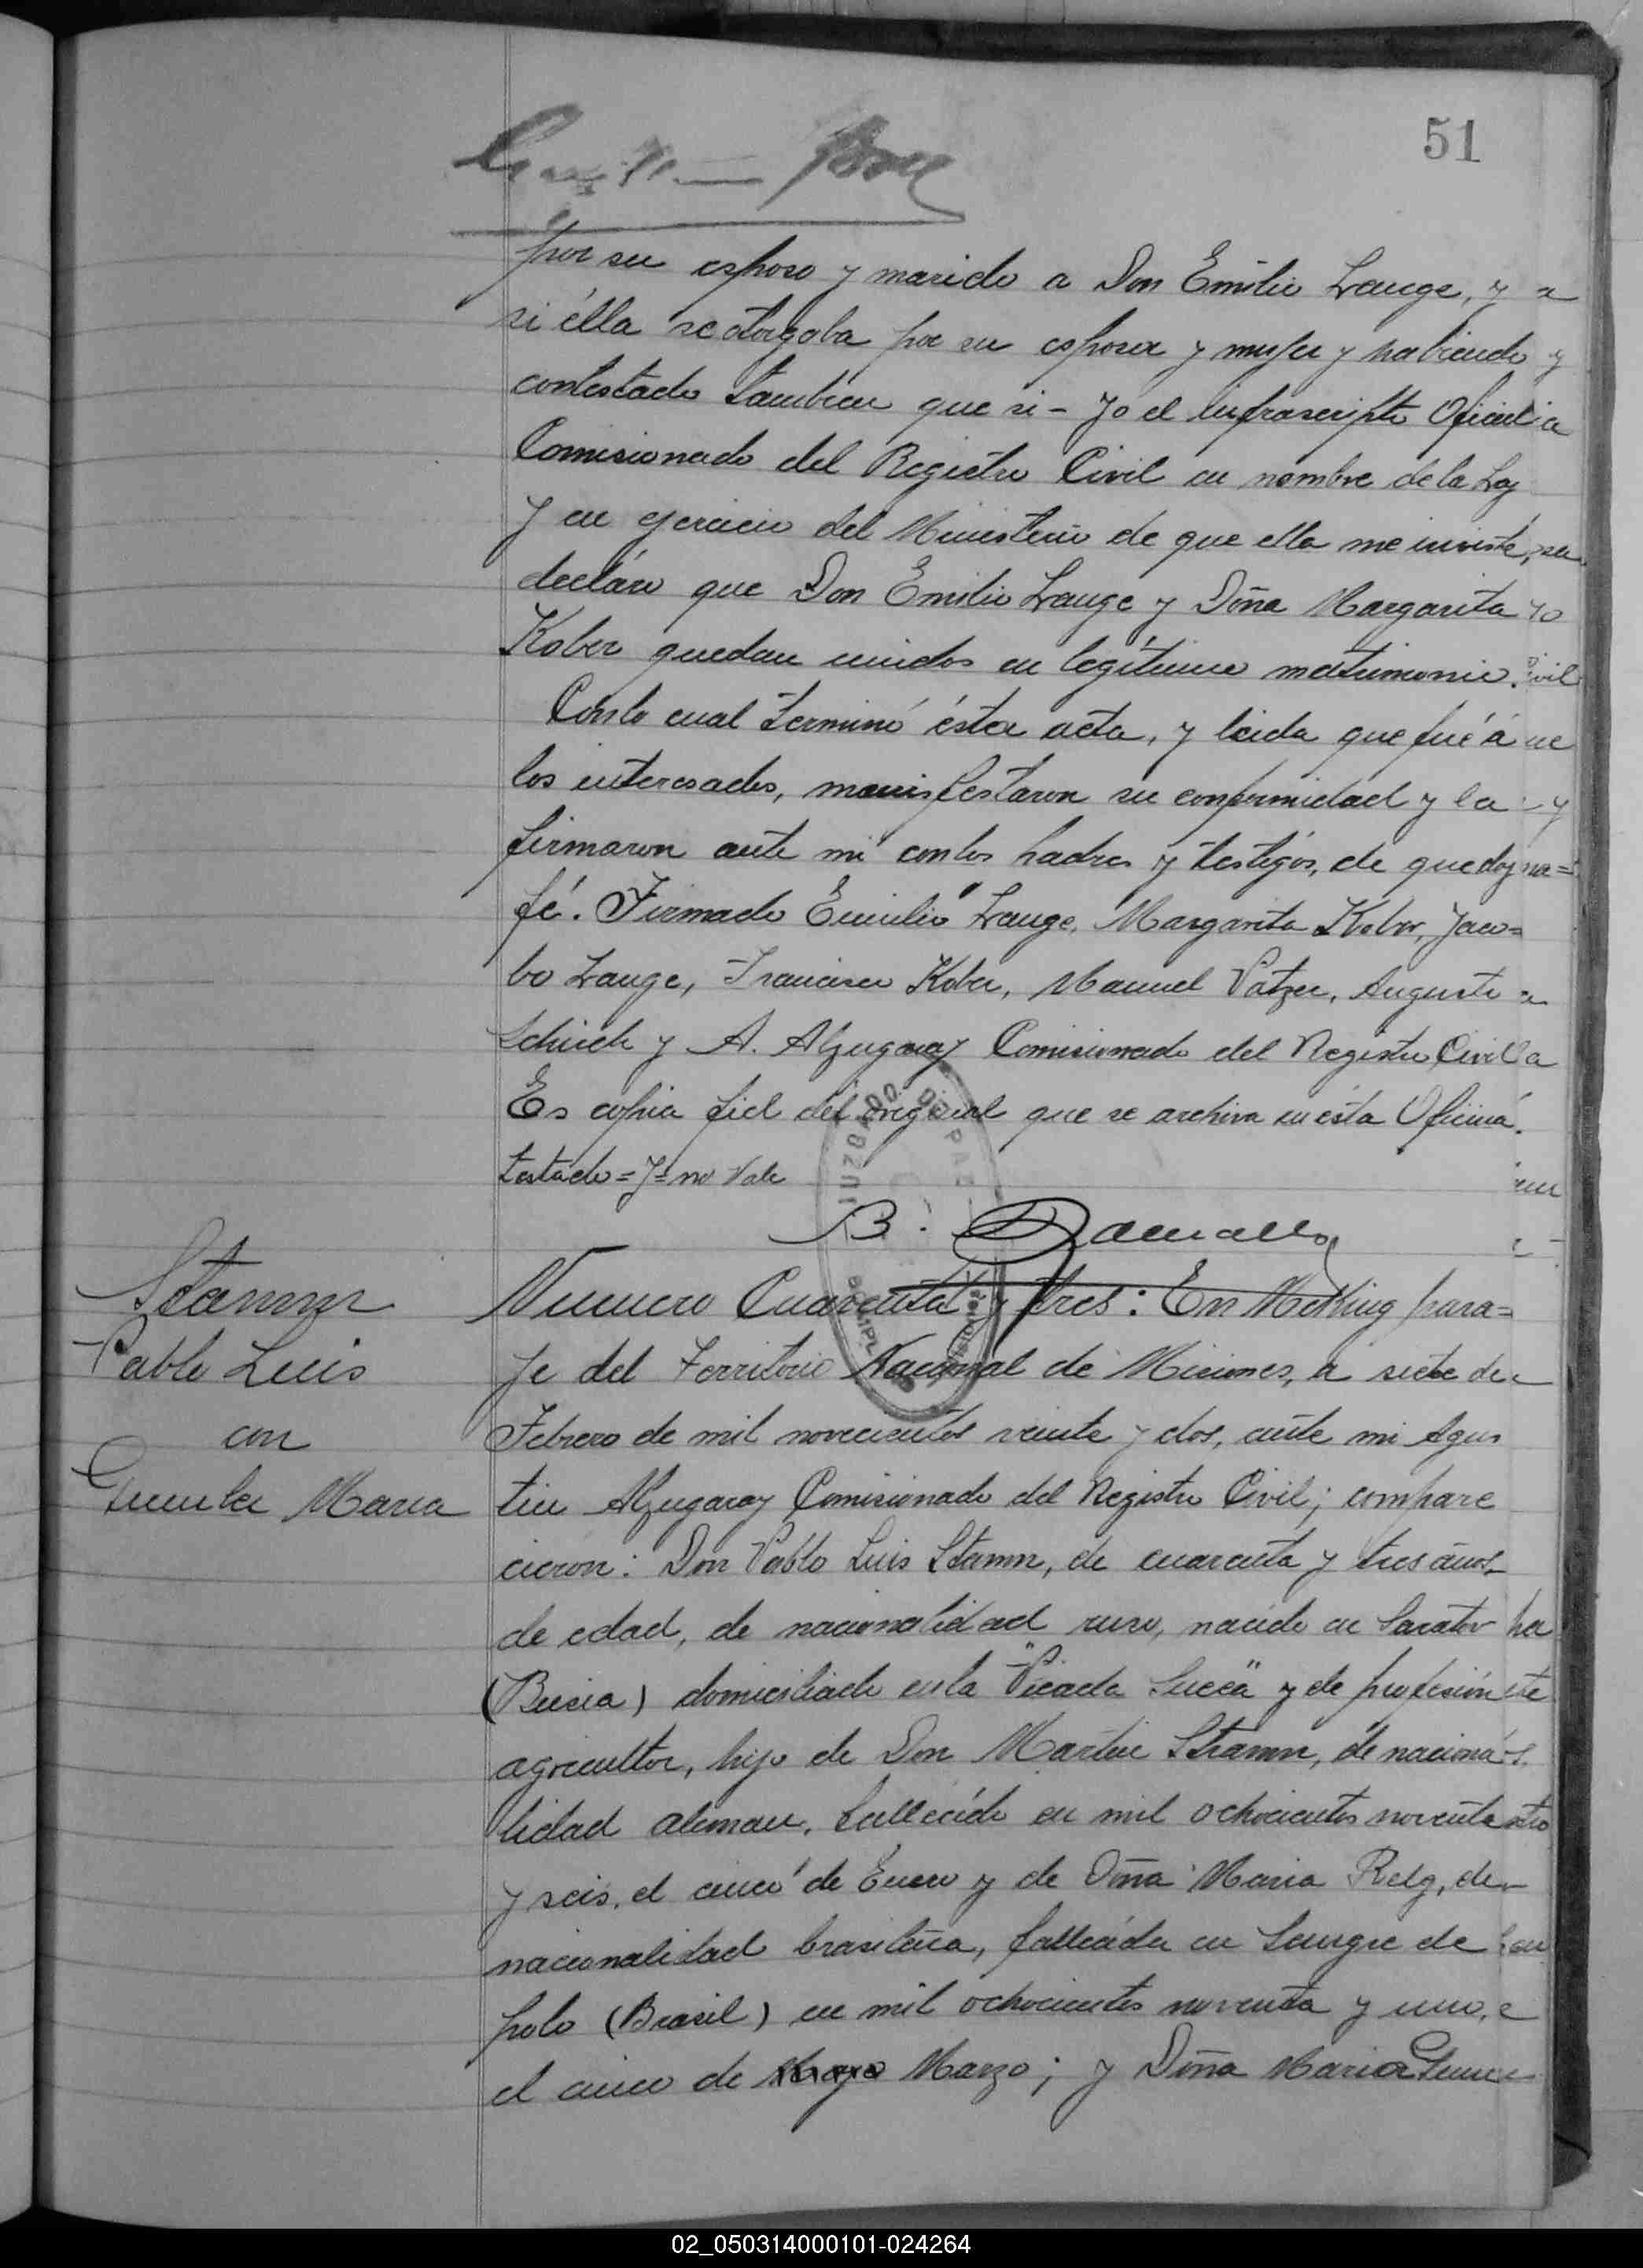 51
por su esposo y marido a Don Emilio Lange, y
si élla se otorgaba por su esposa y mujer y habiendo
contestado tambien que si - Yo el infrascripto Oficial
Comisionado del Registro Civil en nombre de la Ley
y en ejercicio del Ministerio de que ella me inviste,
decláro que Don Emilio Lange y Doña Margarita
Kober quedan unidos en legítimo matrimonio.
Con lo cual terminó ésta acta, y leida que fué á
los interesados, manisfestaron su conformidad y la
firmaron ante mi con los padres y testigos, de que doy
fé. Firmado Emilio Lange, Margarita Kober, Jaco=
bo Lange, Francisco Kober, Manuel Patzer, Augusto
Schuch y A. Alzugaray Comisionado del Registro Civil
Es copia fiel del original que se archiva en ésta Oficina.
testado = y = no vale
B.
JUZGADO DE PAZ
Stamm
Pablo Luis
con
Maria
Numero Cuarenta y tres: En Mecking para=
je del Territorio Nacional de Miciones, a siete de
Febrero de mil novecientos veinte y dos, ante mi Agus
tin Alzugaray Comisionado del Registro Civil; compare
cieron: Don Pablo Luis Stamm, de cuarenta y tres años
de edad, de nacionalidad ruso, nacido en Saratov
(Rusia) domiciliado en la "Picada Sueca" y de profesión
agricultor, hijo de Don Martin Stramm, de naciona
lidad aleman, fallecido en mil ochocientos noventa
y seis, el cinco de Enero y de Doña Maria Relg, de
nacionalidad brasileña, fallecida en de
polo (Brasil) en mil ochocientos noventa y uno,
el cinco de Mayo Marzo; y Doña Maria
02_050314000101-024264